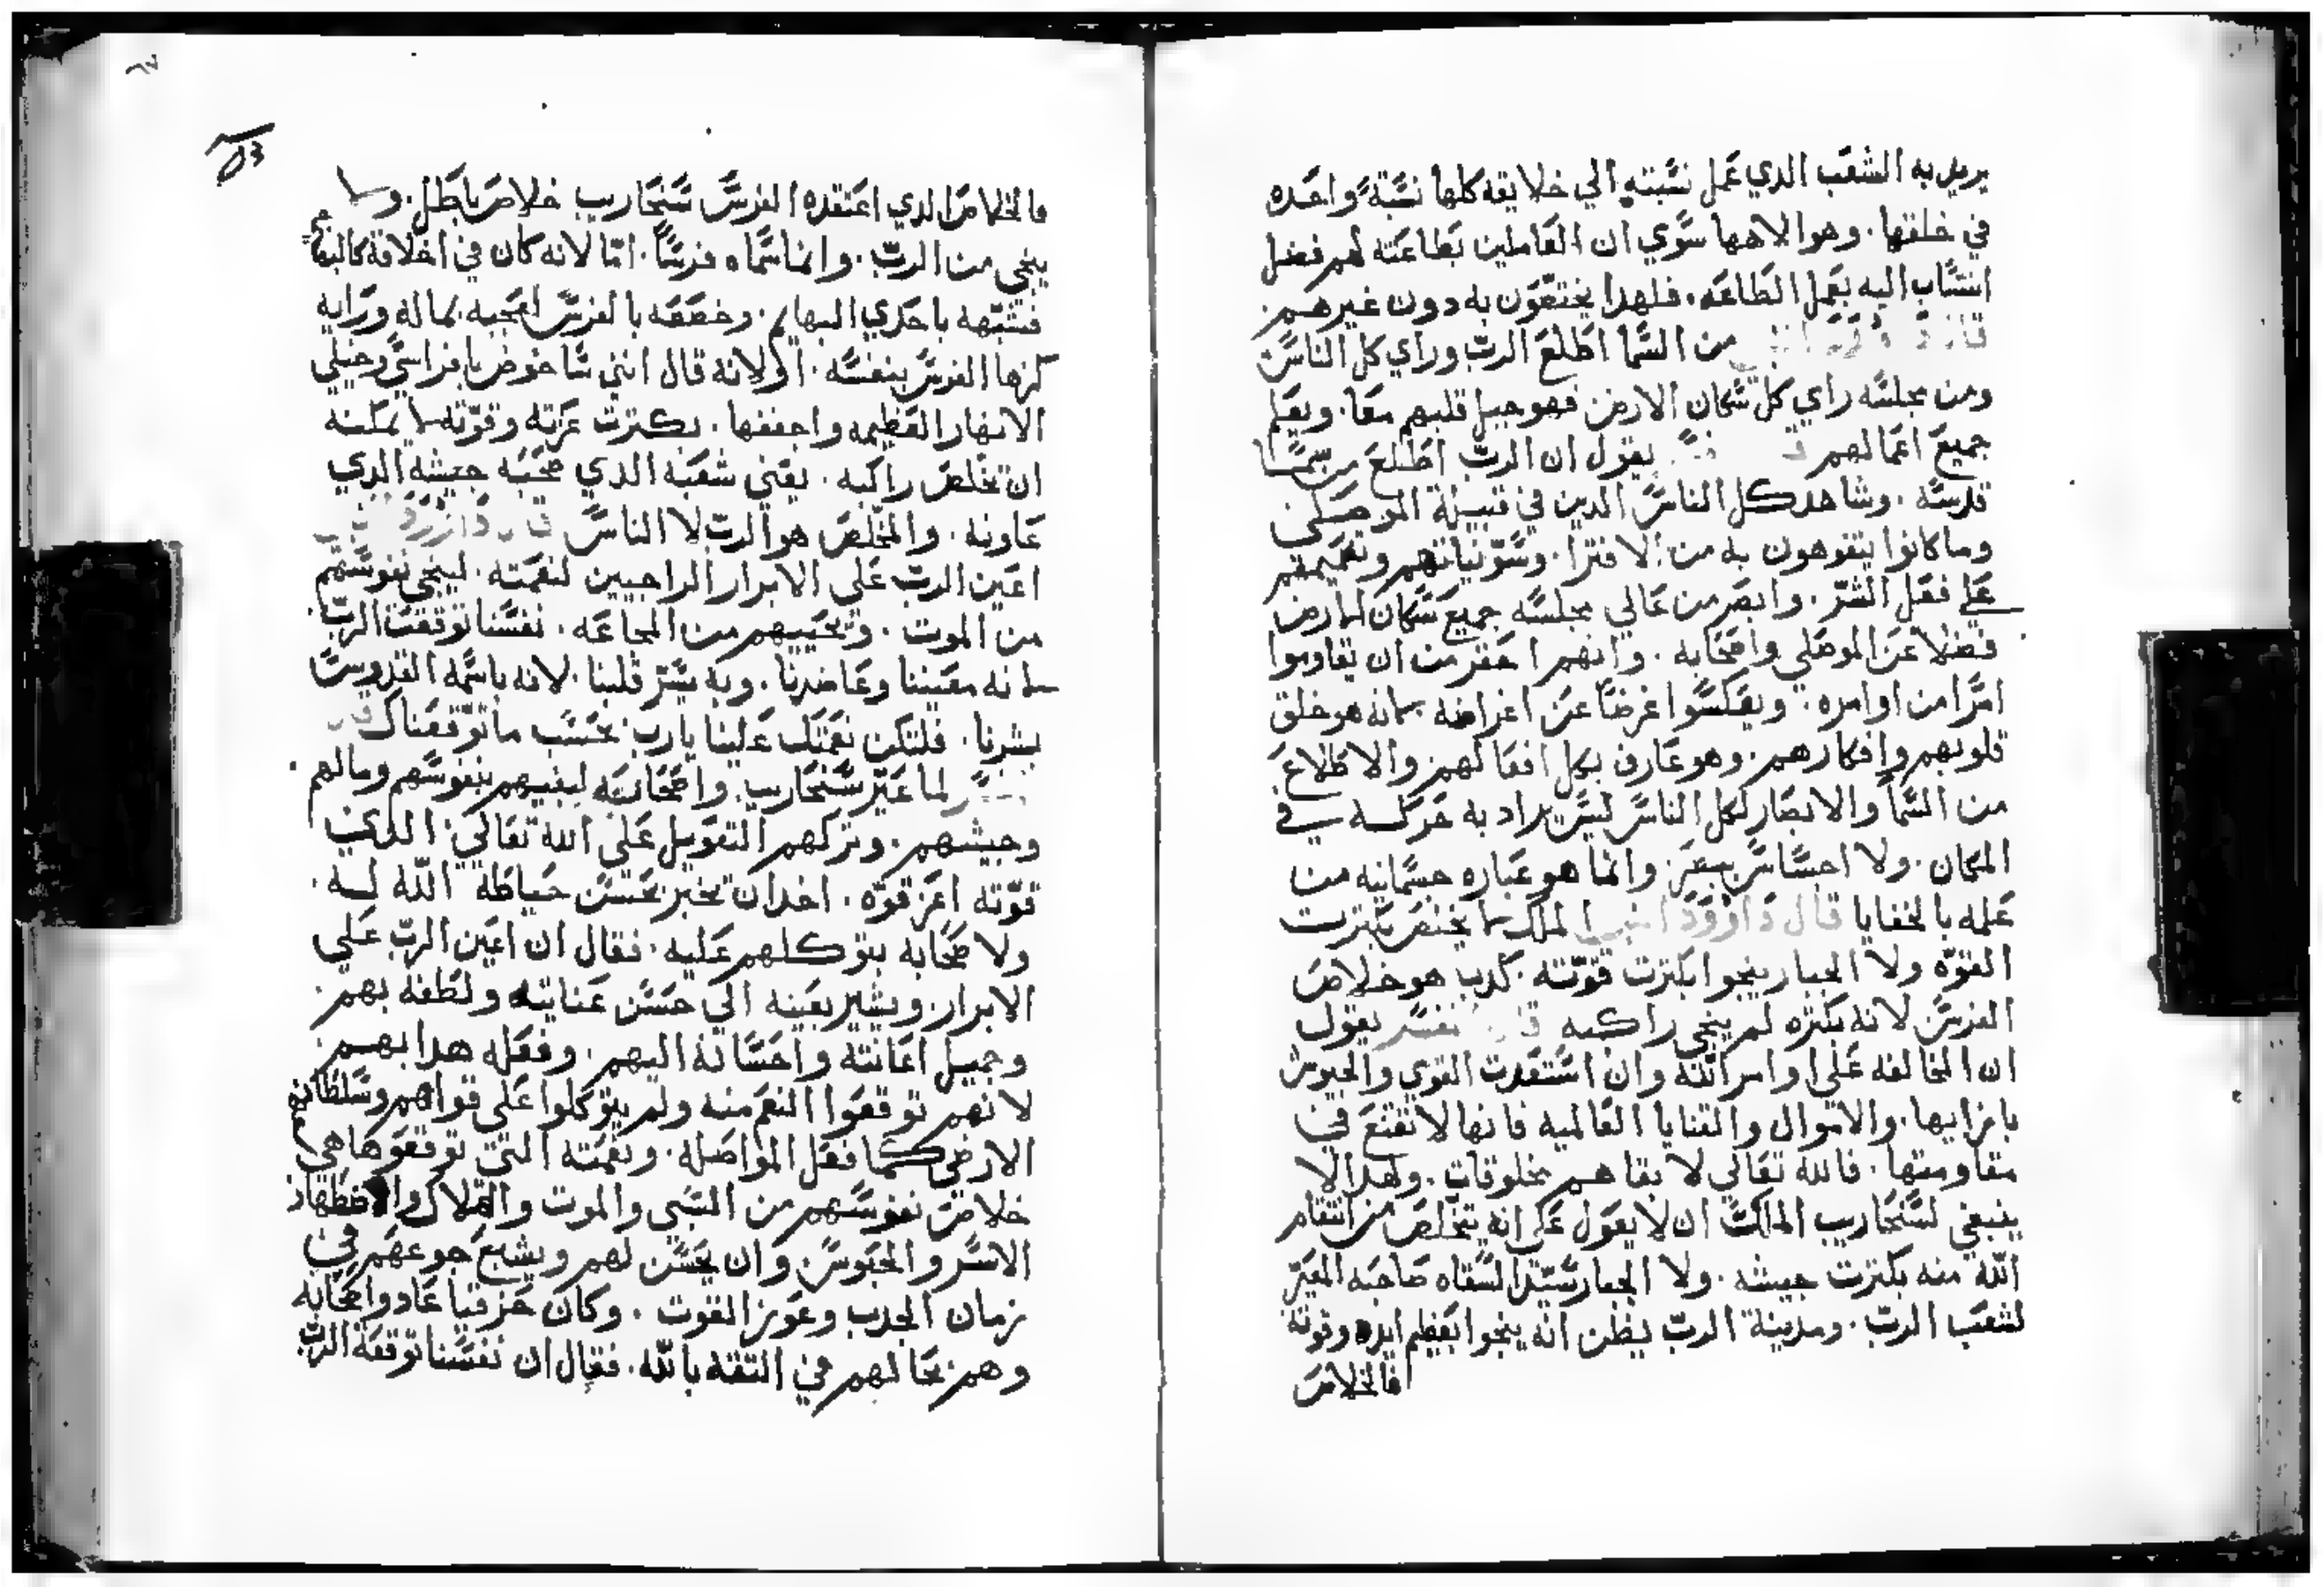 يريد به الشعب الدي عمل نسبته الي خلايقه كلها نسبة واحده
في خلقها . وهو الاهها سوي ان العاملين بطاعته لهم فضل
انتساب اليه بعمل الطاعه . فلهدا يختصون به دون غيرهم
من السما اطلع الرب وراي كل الناس
ومن مجلسه راي كل سكان الارض فهو جبل قلبهم معا . ويعلم
جميع اعمالهم يقول ان الرب اطلع من سما
قدسه . وشاهد كل الناس الدين في قبيلة الموصلي
وما كانوا يتفوهون به من الافترا . وسو نياتهم وتعميمهم
علي فعل الشر . وابصر من عالي مجلسه جميع سكان الارض
فضلا عن الموصلي واصحابه . وانهم احقر من ان يقاوموا
امرا من اوامره . ويعكسوا غرضا عن اغراضه بمانه هو خلق
قلوبهم وافكارهم . وهو عارف بكل افعالهم والاطلاع
من السما والابصار لكل الناس ليس يراد به حركه في
المكان . ولا احساس ببصر وانما هو عباره جسمانيه من
علمه بالخفايا قال داوود الملك لا يخلص بكترت
القوه ولا الجبار ينجوا بكترت قوته . كدب هو خلاص
الفرس لانه بكتره لم ينجي راكبه المفسر يقول
ان المخالفه علي اوامر الله وان استعدت القوي والجيوش
باىزايها . والاموال والقنايا العالميه فانها لا تقنع في
مقاومتها . فالله تعالي لا بقاهم مخلوقات . ولهدا لا
ينبغي لسنحاريب الملك ان لا يعول علي انه يتخلص من انتقام
الله منه بكترت جيشه . ولا الجبار ستدا لسقاه صاحبه المعير
لشعب الرب . ومدينة الرب يظن انه ينجوا بعظم ايده وقوته
فالخلاص
فالخلاص الدي اعتقده الفرس سنحاريب خلاص باطل . ولا
ينجي من الرب . وانما سماه فرسا . اما لانه كان في اخلاقه كالبهايم
فشبهه باحدي البهايم . وخصصه بالفرس لعجبه بماله ورايه
كزها الفرس بنفسه . او لانه قال انني ساخوض بافراسي وخيلي
الانهار العظيمه واجففها . بكترت عزته وقوته لا يمكنه
ان تخلص راكبه . يعني شعبه الدي صحبه جيشه الدي
عاونه . والمخلص هو الرب لا الناس قال داوود
اعين الرب علي الابرار الراجيين لنعمته . لينجي نفوسهم
من الموت . ويحييهم من المجاعه . نفسنا توقعت الرب
لانه معيننا وعاضدنا . وبه يسر قلبنا . لانه باسمه القدوس
بشرنا . فلتكن نعمتك علينا يارب بحسب ما توقعناك قال
لما عير سنحاريب واصحابه لبغيهم بنفوسهم ومالهم
وجيشهم . وتركهم التعويل علي الله تعالي . الدي
قوته اعز قوه . اخد ان تخبر بحسن حياطة الله له .
ولاصحابه بتوكلهم عليه . فقال ان اعين الرب علي
الابرار . ويشير بعينه الي حسن عنايته ولطفه بهم
وجميل اعانته واحسانه اليهم . وفعله هدا بهم
لانهم توقعوا النعم منه ولم يتوكلوا علي قواهم وسلطانهم
الارضي كما فعل المواصله . ونعمته التي توقعوها هي
خلاص نفوسهم من السبي والموت والهلاك والاضطهاد
الاسر والحبوس . وان يحسن لهم ويشبع جوعهم في
زمان الجدب وعوز القوت . وكان حزقيا عاد واصحابه
وهم بحالهم في التقه بالله . فقال ان نفسنا توقعة الرب